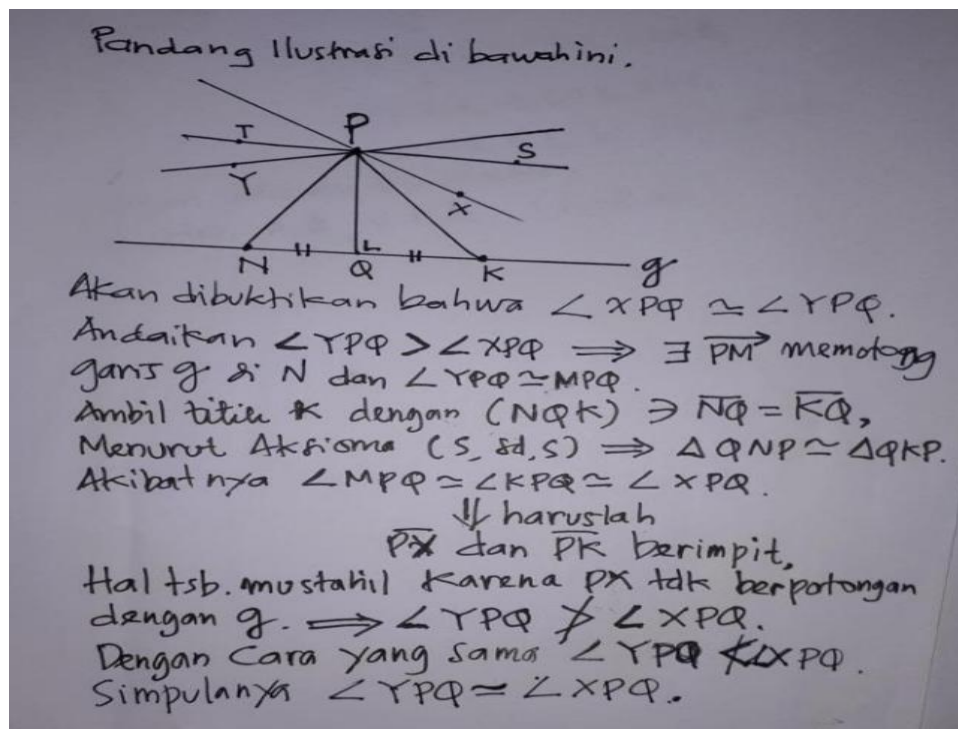 Pandang Ilustrasi di bawah ini.
T
P
S
Y
X
N
Q
K
g
Akan dibuktikan bahwa ∠XPQ ≃ ∠YPQ.
Andaikan ∠YPQ > ∠XPQ ⟹ ∃ PM→ memotong
garis g di N dan ∠YPQ ≃ MPQ.
Ambil titik K dengan (NQK) ∋ N̅Q̅ = K̅Q̅,
Menurut Aksioma (S, sd, S) ⟹ △QNP ≃ △QKP.
Akibatnya ∠MPQ ≃ ∠KPQ ≃ ∠XPQ.
⇓ haruslah
P̅X̅ dan P̅K̅ berimpit,
Hal tsb. mustahil karena PX tdk berpotongan
dengan g. ⟹ ∠YPQ ≯ ∠XPQ.
Dengan Cara yang sama ∠YPQ ≮ ∠XPQ.
Simpulanya ∠YPQ ≃ ∠XPQ.